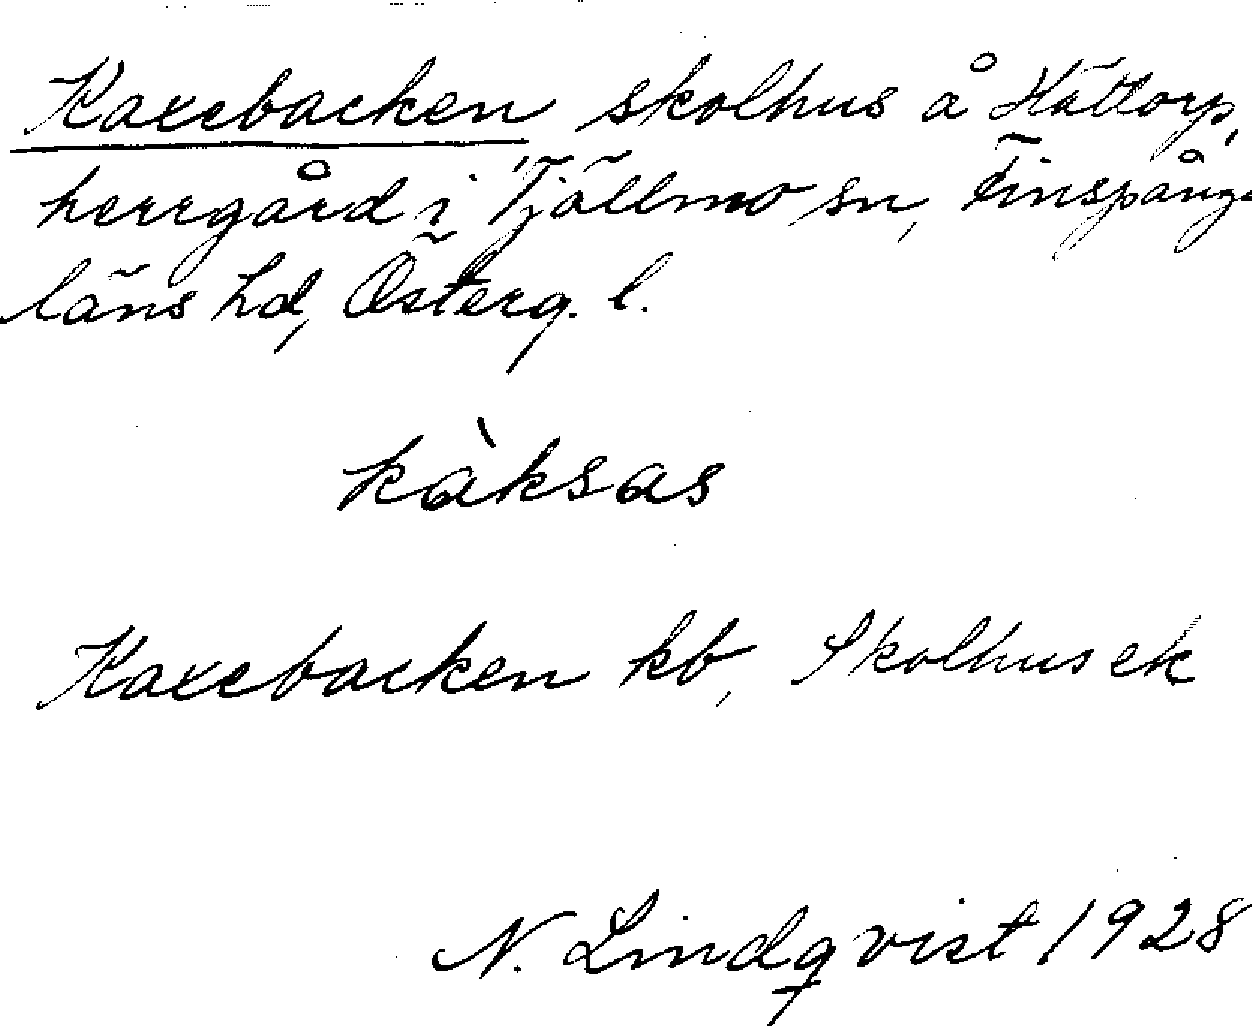 Kaxebacken skolhus å Hättorp,
herrgård i Tjällmo sn, Finspånga
läns hd, Österg. l.
kàksas
Kaxebacken kb, Skolhus ek
N. Lindqvist 1928